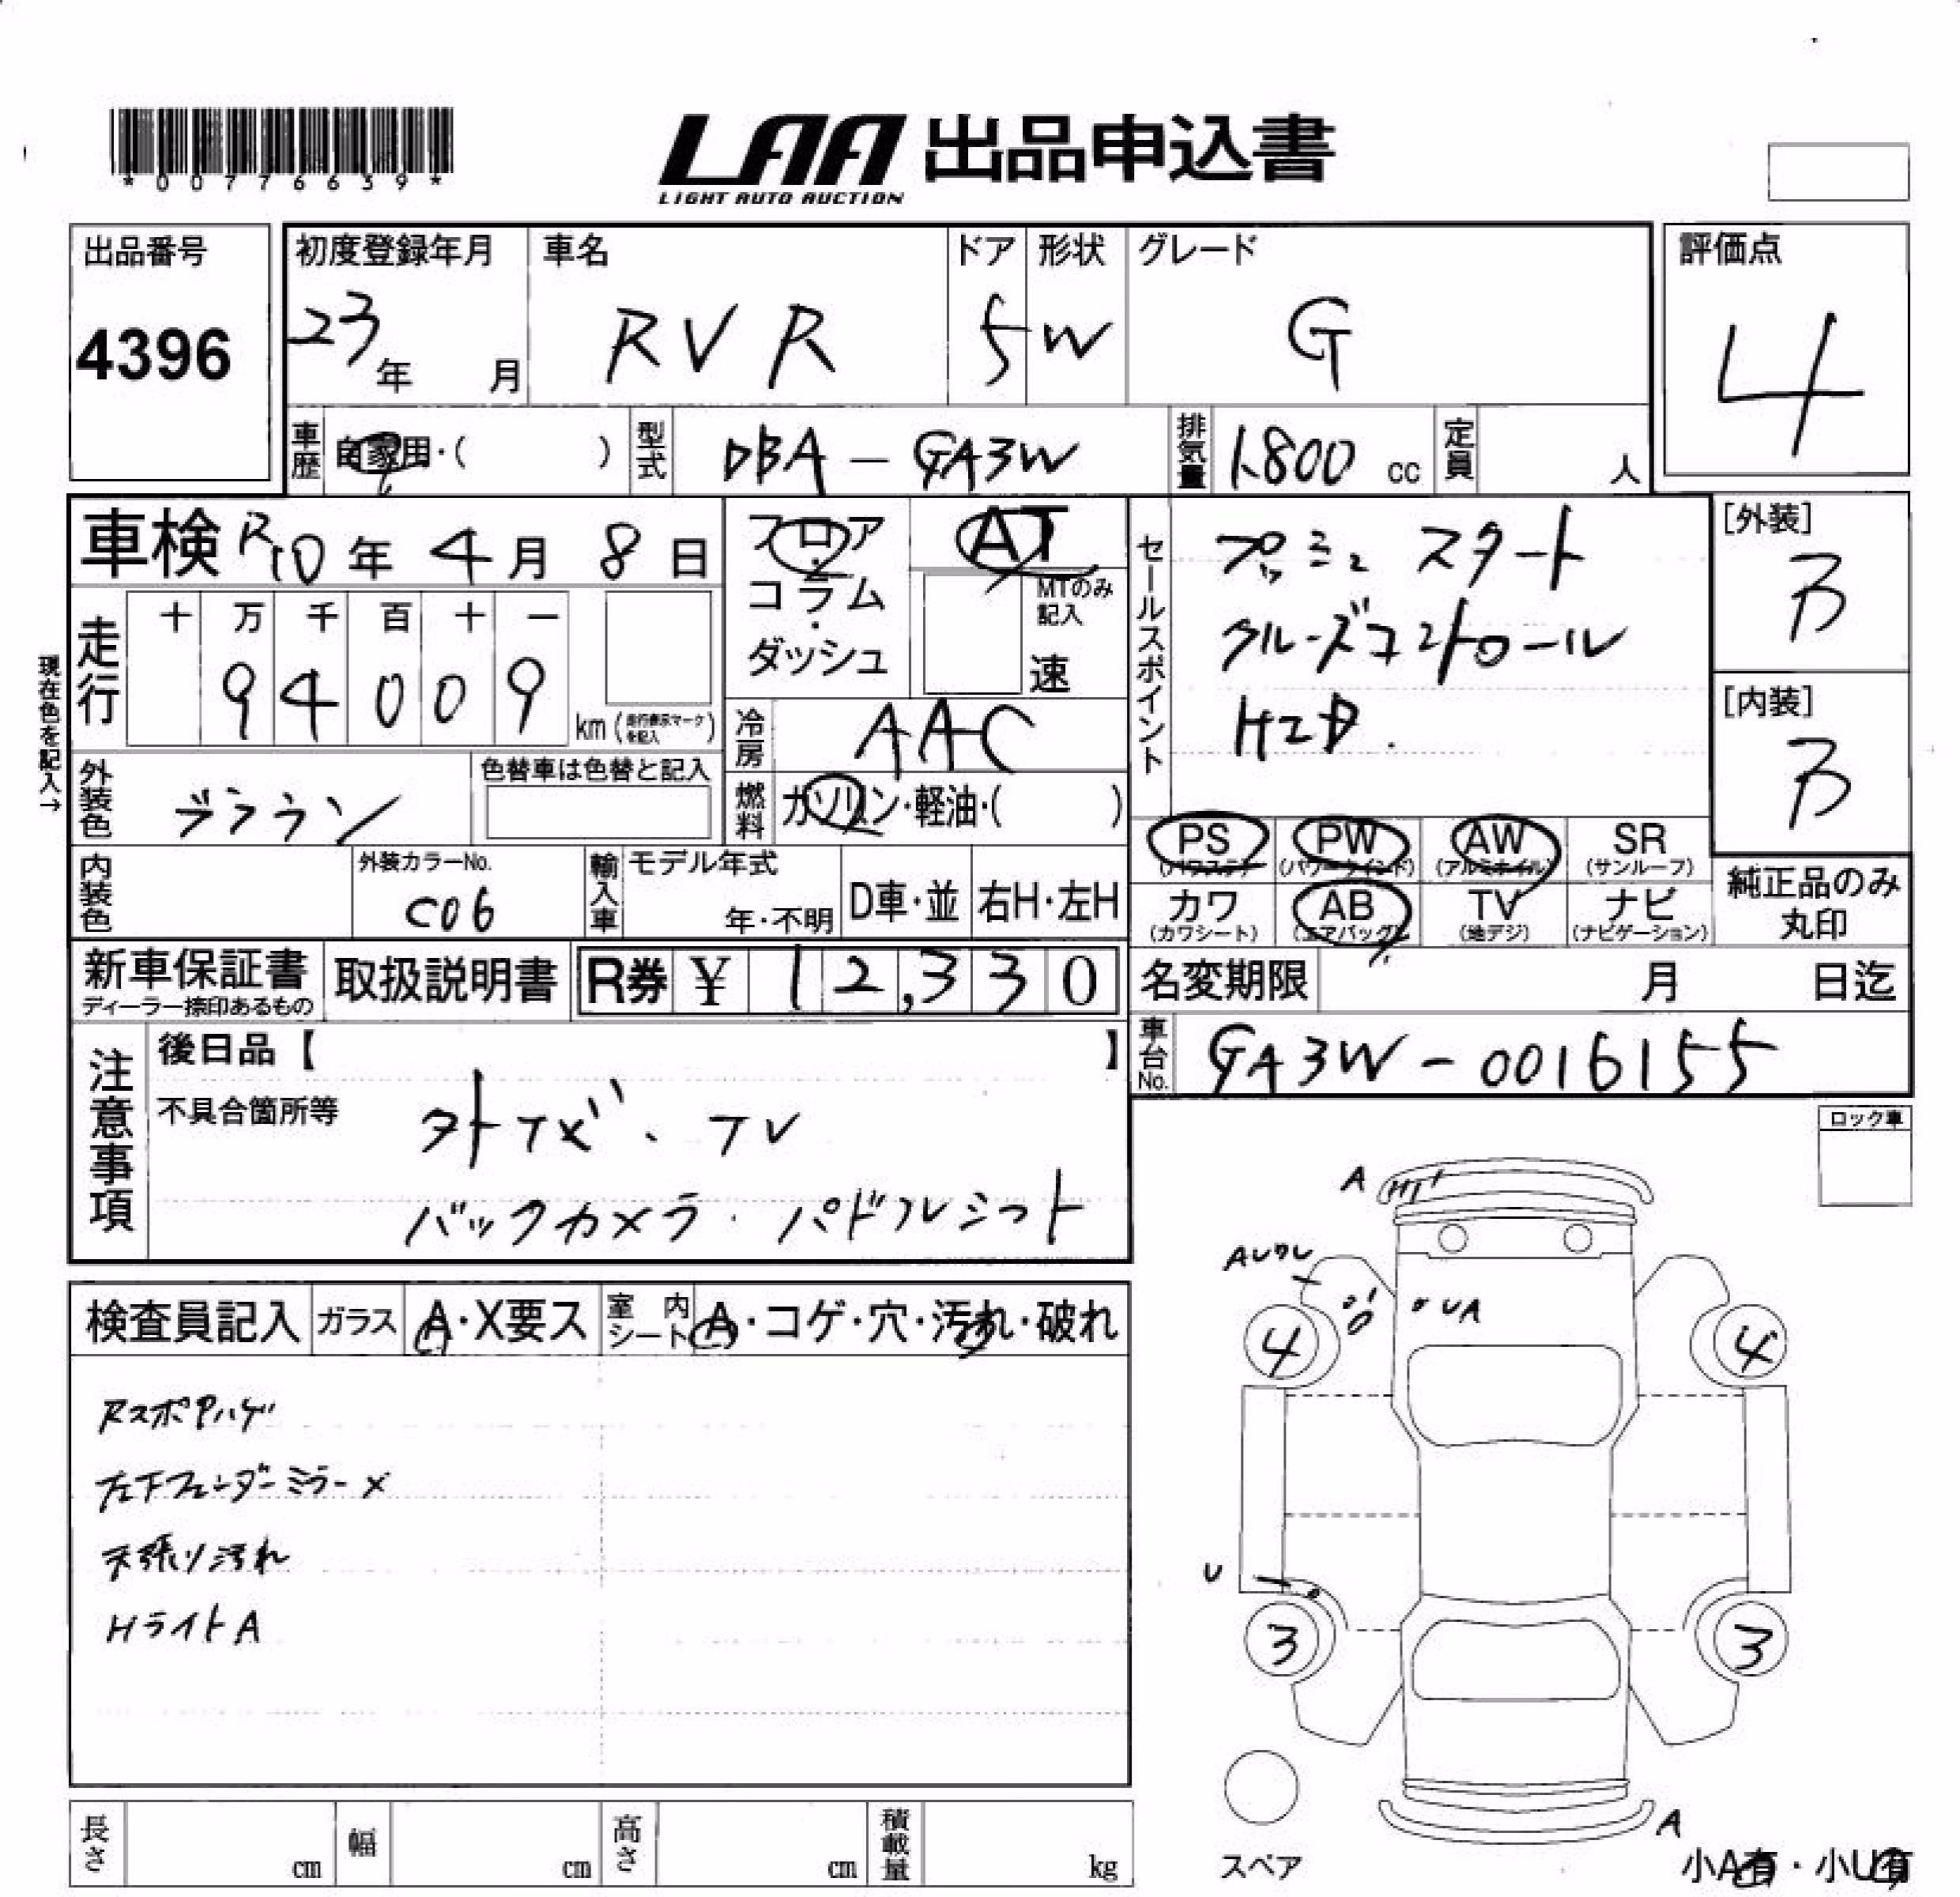 *00776639*
LAA 出品申込書
LIGHT AUTO AUCTION
出品番号
4396
初度登録年月
23年 月
車名
RVR
ドア
5
形状
W
グレード
G
評価点
4
車歴
自家用・( )
型式
DBA-GA3W
排気量
1,800 cc
定員
人
車検 R10年 4月 8日
現在色を記入→
走行
十 万 千 百 十 一
9 4 0 0 9
km (走行表示マークを記入)
フロア・コラム・ダッシュ
AT
MTのみ記入
速
冷房
AAC
燃料
ガソリン・軽油・( )
外装色
ブラウン
色替車は色替と記入
内装色
外装カラーNo.
C06
輸入車
モデル年式
年・不明
D車・並
右H・左H
セールスポイント
プッシュスタート
クルーズコントロール
HID.
[外装]
B
[内装]
B
PS
(パワステ)
PW
(パワーウインド)
AW
(アルミホイル)
SR
(サンルーフ)
カワ
(カワシート)
AB
(エアバッグ)
TV
(地デジ)
ナビ
(ナビゲーション)
純正品のみ
丸印
新車保証書
ディーラー捺印あるもの
取扱説明書
R券 ¥ 12,330
名変期限 月 日迄
車台No.
GA3W-0016155
注意事項
後日品【 】
不具合箇所等
外ナビ、TV
バックカメラ・パドルシフト
ロック車
検査員記入
ガラス
A・X要ス
室内シート
A・コゲ・穴・汚れ・破れ
左下フェンダーミラーX
天張り汚れ
HライトA
A
UA
4
4
U
3
3
A
スペア
小A有・小U有
長さ cm
幅 cm
高さ cm
積載量 kg